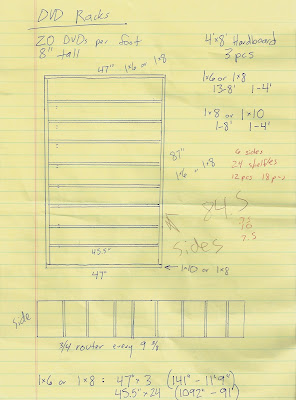 DVD Racks
20 DVDs per foot
8" tall
4'x8' Hardboard
3 pcs
47" 1x6 or 1x8
1x6 or 1x8
13-8' 1-4'
1x8 or 1x10
1-8' 1-4'
87"
1x6 or 1x8
6 sides
24 shelves
12 pcs 18 pcs
84.5
9.5
7.5
sides
45.5"
47"
1x10 or 1x8
side
3/4 router every 9 1/2
1x6 or 1x8: 47" x 3 (141" - 11'9")
45.5" x 24 (1092" - 91')